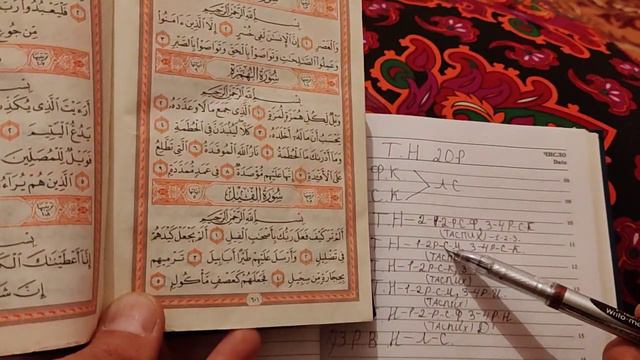 بِسْمِ اللَّهِ الرَّحْمَٰنِ الرَّحِيمِ
وَالْعَصْرِ ١ إِنَّ الْإِنسَانَ لَفِي خُسْرٍ ٢ إِلَّا الَّذِينَ آمَنُوا
وَعَمِلُوا الصَّالِحَاتِ وَتَوَاصَوْا بِالْحَقِّ وَتَوَاصَوْا بِالصَّبْرِ ٣
سُورَةُ الْهُمَزَةِ
بِسْمِ اللَّهِ الرَّحْمَٰنِ الرَّحِيمِ
وَيْلٌ لِّكُلِّ هُمَزَةٍ لُّمَزَةٍ ١ الَّذِي جَمَعَ مَالًا وَعَدَّدَهُ ٢
يَحْسَبُ أَنَّ مَالَهُ أَخْلَدَهُ ٣ كَلَّا لَيُنبَذَنَّ فِي الْحُطَمَةِ ٤
وَمَا أَدْرَاكَ مَا الْحُطَمَةُ ٥ نَارُ اللَّهِ الْمُوقَدَةُ ٦ الَّتِي تَطَّلِعُ
عَلَى الْأَفْئِدَةِ ٧ إِنَّهَا عَلَيْهِم مُّؤْصَدَةٌ ٨ فِي عَمَدٍ مُّمَدَّدَةٍ ٩
سُورَةُ الْفِيلِ
بِسْمِ اللَّهِ الرَّحْمَٰنِ الرَّحِيمِ
أَلَمْ تَرَ كَيْفَ فَعَلَ رَبُّكَ بِأَصْحَابِ الْفِيلِ ١ أَلَمْ يَجْعَلْ كَيْدَهُمْ
فِي تَضْلِيلٍ ٢ وَأَرْسَلَ عَلَيْهِمْ طَيْرًا أَبَابِيلَ ٣ تَرْمِيهِم
بِحِجَارَةٍ مِّن سِجِّيلٍ ٤ فَجَعَلَهُمْ كَعَصْفٍ مَّأْكُولٍ ٥
٦٠١
فَلْيَعْبُدُوا
مِّن جُوعٍ
أَرَأَيْتَ الَّذِي يُكَذِّبُ
يَدُعُّ الْيَتِيمَ
فَوَيْلٌ لِّلْمُصَلِّينَ
الَّذِينَ هُمْ يُرَاءُونَ
إِنَّا أَعْطَيْنَاكَ
ЧИСЛО
Date
Т.Н 20Р
С.К
Л С
Т Н-2-Р-2-Р-С-Ф 3-4Р-С-К
(ТАСПИХ)-1-2-3.
Т Н-1-2Р-С-Н, 3-4Р-С-К.
Т.Н-1-2-Р-С-К
(ТАСПИХ)
Т.Н-1-2-Р-С-Н, 3-4Р-Н.
(ТАСПИХ)
Т.Н-1-2-Р-С-Ф, 3-4Р-Н
(ТАСПИХ)
3.Р В Н-Л-С.
08
09
10
11